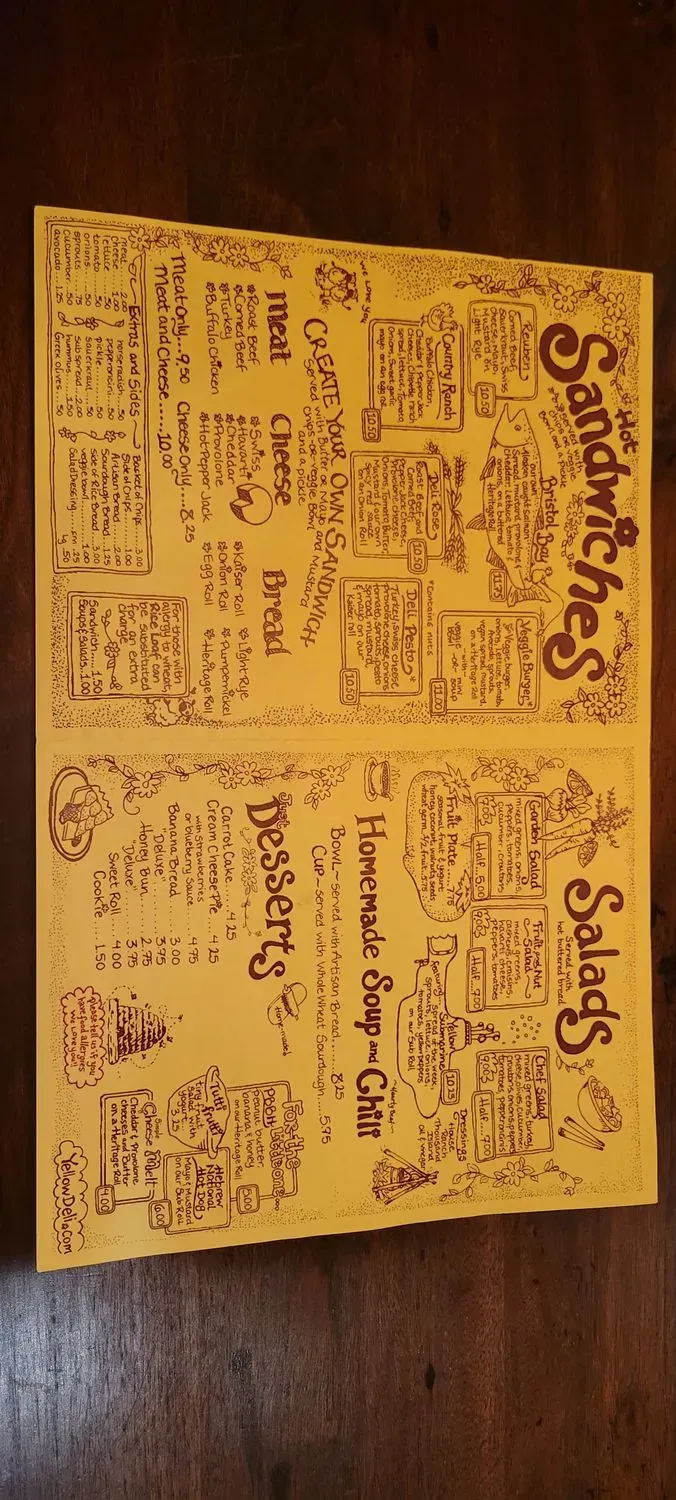 Hot
Sandwiches
served with veggie
Chips and a pickle
Reuben
Corned Beef,
Sauerkraut, Swiss
cheese, mayo,
Mustard on
Light Rye
10.50
Bristol Bay
our own
Alaskan caught salmon
spread, mustard, provolone &
cheddar, lettuce, tomato
onions, on a buttered
Heritage Roll
11.75
Veggie Burger*
onions, lettuce, tomato,
Avocado, sprouts,
vegan spread, mustard,
on a Heritage Roll
-with-
veggie mini
bowl -or- soup
11.00
Country Ranch
Buffalo Chicken,
Cheddar & Pepper Jack
Cheeses, Chipotle ranch
spread, lettuce, Tomato
Onions, Sweet garlic
mayo on an egg roll
10.50
Deli Rose
Roast Beef and
Corned Beef,
Pepper Jack Cheese,
Provolone cheese,
Onions, Tomato, Butter,
Mustard & our own
spicy rosé sauce,
on an Onion Roll
10.50
*Contains nuts
Deli Pesto*
Turkey, swiss cheese
provolone cheese, onions
tomato, sprouts, pesto
spread, mustard,
& mayo on our
Kaiser roll
10.50
we love you
CREATE YOUR OWN SANDWICH
Served with Butter or Mayo and Mustard
chips-or-veggie Bowl
and a pickle
Meat
Roast Beef
Corned Beef
Turkey
Buffalo Chicken
Cheese
Swiss
Havarti
Cheddar
Provolone
Hot Pepper Jack
Bread
Kaiser Roll
Onion Roll
Egg Roll
Light Rye
Pumpernickel
Heritage Roll
Meat Only...9.50 Cheese Only...8.25
Meat and Cheese.....10.00
Extras and Sides
meat 2.00
cheese 1.00
lettuce .50
tomato .50
onions .50
sprouts .75
cucumber .50
avocado 1.25
horseradish .50
pepperoncini .50
pickle .50
sauerkraut .50
sub spread 2.00
hummus 1.50
Green olives .50
Basket of Chips 3.00
Bag of Chips 1.00
Artisan Bread 2.00
Sourdough Bread 1.25
Side of Rice Bread 3.00
veggie bowl 1.00
Salad Dressing sm .25
lg .50
For those with
allergy to wheat,
Rice Bread can
be substituted
for an extra
charge
Sandwich.... 1.50
Soups & Salads 1.00
Salads
Served with
hot buttered bread
Garden Salad
mixed greens, onions,
peppers, tomatoes,
cucumber, croutons
9.00
Half...5.00
Fruit and Nut
Salad
mixed greens,
cashews, raisins,
havarti cheese,
peppers, tomatoes
9.00
Half...7.00
Chef Salad
mixed greens, turkey,
cheese, olives, cucumber,
croutons, onions, peppers
tomatoes, pepperoncini
9.00
Half...7.00
Fruit Plate.....7.75
seasonal fruit & yogurt
honey, coconut, walnuts, seeds
wheat germ
Yellow Submarine
featuring....spread of the week,
sprouts, lettuce, onions,
tomatoes, yellow peppers
on our Sub Roll
10.25
Dressings
House
Ranch
Thousand
Island
Oil & Vinegar
Homemade Soup and Chili
BOWL~served with Artisan Bread.......8.25
Cup~served with Whole Wheat Sourdough.....5.75
Just
Desserts
Homemade
Carrot Cake...... 4.25
Cream Cheese Pie 4.25
with strawberries
or blueberry sauce 4.75
Banana Bread 3.00
"Deluxe" 3.75
Honey Bun 2.95
"Deluxe" 3.95
Sweet Roll 4.00
Cookie 1.50
please tell us if you
have food allergies
we love you!!
For the
little ones
PBB&H
peanut butter,
banana, & honey
on our Heritage Roll
5.00
Tutti
frutti
tiny fruit
salad with
yogurt
3.25
Hebrew
National
Hot Dog
Mayo & Mustard
on our Sub Roll
6.00
Simple
Cheese Melt
Cheddar & Provolone
cheeses and butter
on a Heritage Roll
4.00
YellowDeli.com